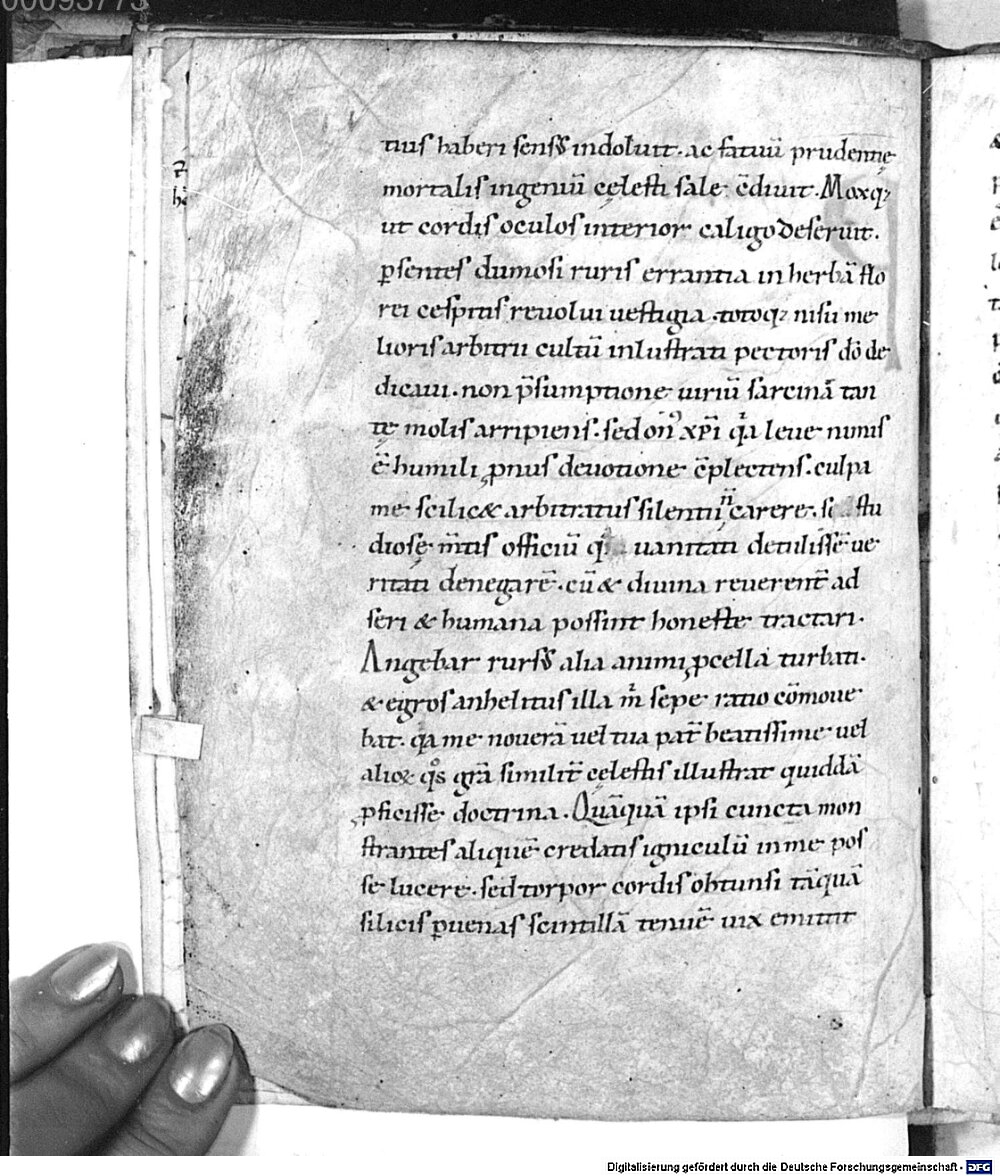 00093773
tius haberi sensꝰ indoluit. ac fatuū prudentię
mortalis ingeniū cęlesti sale c̄diuit. Moxq;
ut cordis oculos interior caligo deseruit.
p̄sentes dumosi ruris errantia in herbā flo
rei cespitis reuolui uestigia. totoq; nisu me
lioris arbitrii cultū inlustrati pectoris dō de
dicaui. non p̄sumptione uiriū sarcinā tan
tę molis arripiens. sed on᷒ xp̄i qͥa leue nimis
ē humili ꝓnus deuotione c̄plectens. culpa
me scilic& arbitratus silentii n̄ carere. si stu
diosę m̄tis officiū uanitati detulissē ue
ritati denegarē. cū & diuina reuerent̄ ad
seri & humana possint honeste tractari.
Angebar rursꝰ alia animi ꝓcella turbati.
& egros anhelitus illa m̄ sepe ratio cōmoue
bat. qͥa me nouerā uel tua pat̄ beatissime uel
alioꝝ qͦs grā similit̄ cęlestis illustrat quiddā
ꝓficisse doctrina. Quāquā ipsi cuncta mon
strantes aliquē credatis igniculū in me pos
se lucere. sed torpor cordis obtunsi tāquā
silicis ꝑuenas scintillā tenuē uix emittit
Digitalisierung gefördert durch die Deutsche Forschungsgemeinschaft - DFG